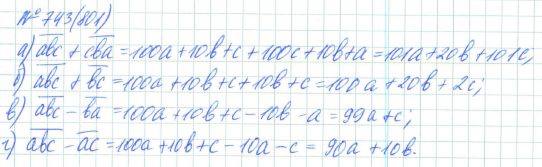 № 743(801)
а) a̅b̅c̅ + c̅b̅a̅ = 100a + 10b + c + 100c + 10b + a = 101a + 20b + 101c;
б) a̅b̅c̅ + b̅c̅ = 100a + 10b + c + 10b + c = 100a + 20b + 2c;
в) a̅b̅c̅ - b̅a̅ = 100a + 10b + c - 10b - a = 99a + c;
г) a̅b̅c̅ - a̅c̅ = 100a + 10b + c - 10a - c = 90a + 10b.